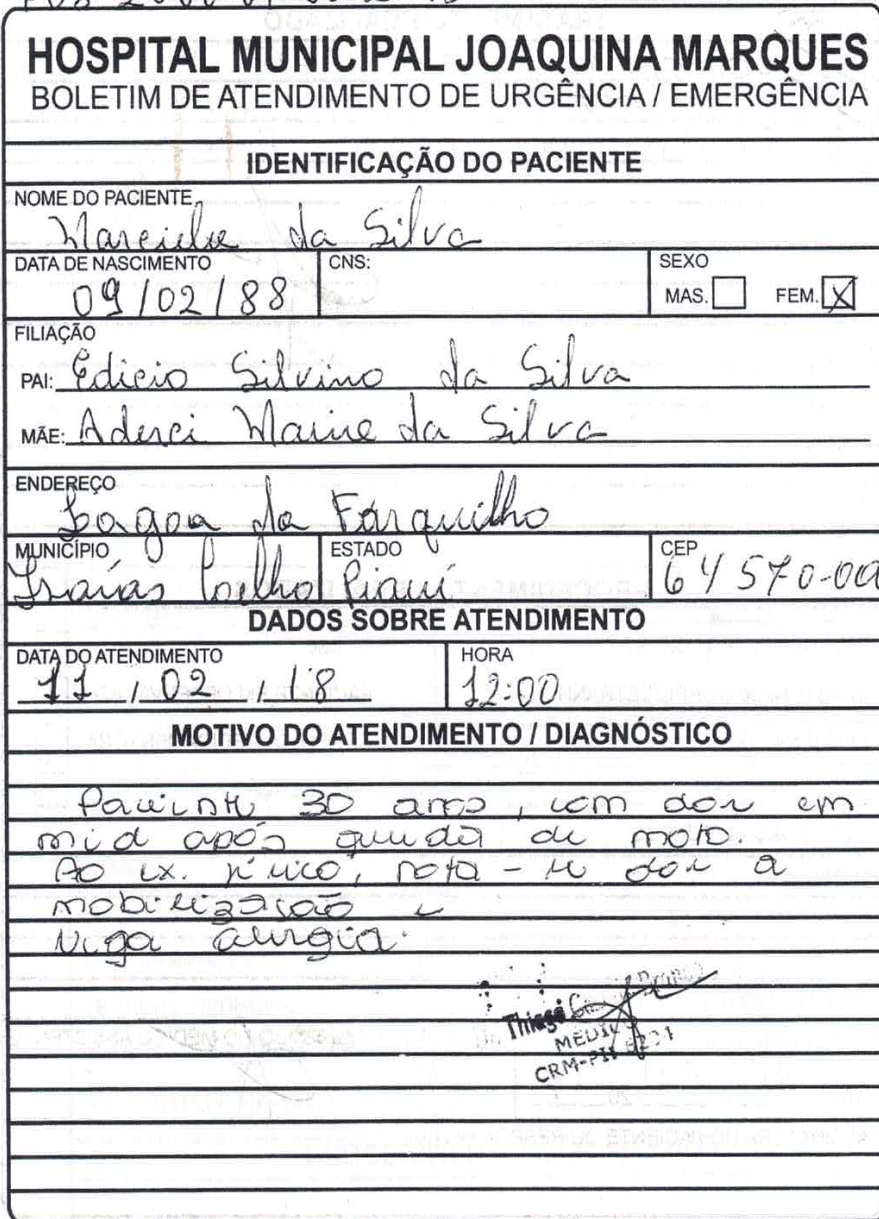 HOSPITAL MUNICIPAL JOAQUINA MARQUES
BOLETIM DE ATENDIMENTO DE URGÊNCIA / EMERGÊNCIA
IDENTIFICAÇÃO DO PACIENTE
NOME DO PACIENTE
da Silva
DATA DE NASCIMENTO CNS: SEXO
09/02/88 MAS. FEM. X
FILIAÇÃO
PAI: Edicio Silvino da Silva
MÃE: Aderci da Silva
ENDEREÇO
Lagoa da Forquilho
MUNICÍPIO ESTADO CEP
Isaías Coelho Piauí 64570-00
DADOS SOBRE ATENDIMENTO
DATA DO ATENDIMENTO HORA
11 / 02 / 18 12:00
MOTIVO DO ATENDIMENTO / DIAGNÓSTICO
Paciente 30 anos, com dor em
mid após queda de moto.
Ao ex. físico, nota-se dor a
mobilização e
Nega alergia.
Thiago
MÉDICO
CRM-PI